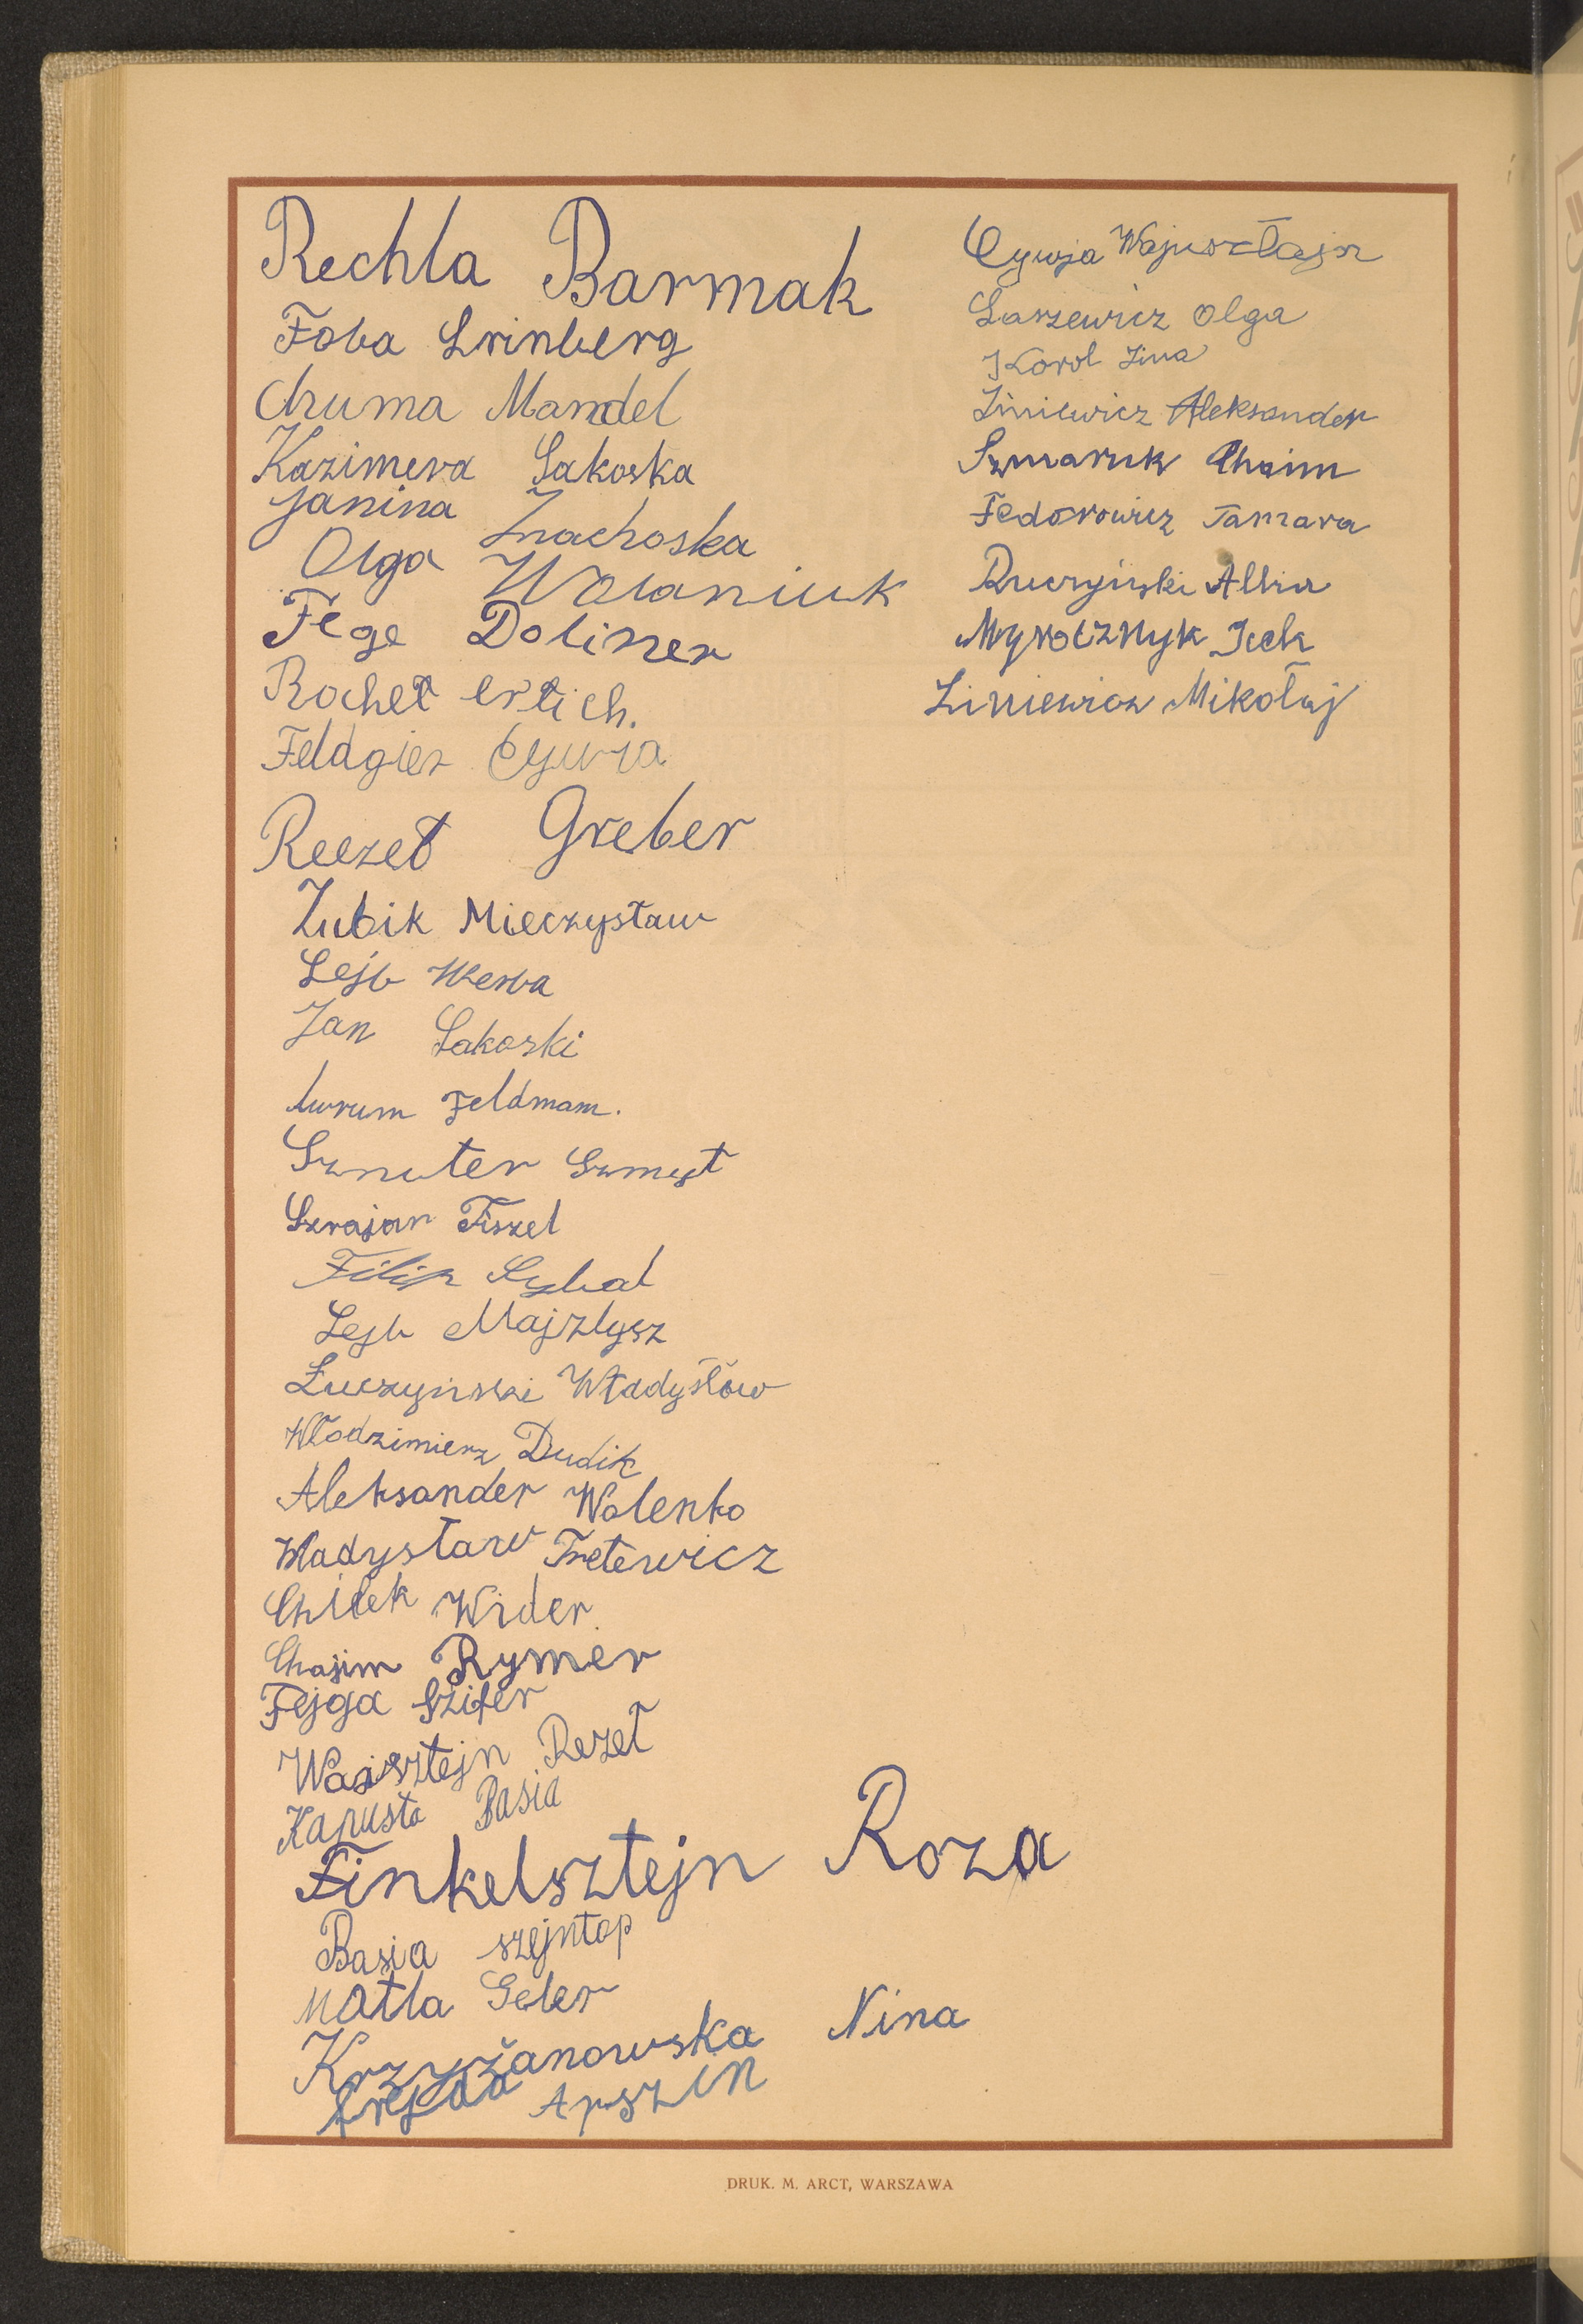 Rechla Barmak
Foba Grinberg
Chuma Mandel
Kazimera Sakoska
Janina Znachoska
Olga Wolaniuk
Fege Doliner
Rochel erlich.
Feldgier Cywia
Reezet Greber
Zubik Mieczysław
Lejb Werba
Jan Sakoski
Awrum Feldmam.
Sznuter
Szrajar Fiszel
Filip
Lejb Majzlysz
Łuczyński Władysłow
Włodzimierz Dudik
Aleksander Wolenko
Władysław Fretewicz
Chilek Wider
Chajim Rymer
Fejga Szifer
Wajsztejn Rezet
Kapusta Basia
Finkelsztejn Roza
Basia szejntop
Matla Geler
Krzyżanowska Nina
Frejda Apszin
Cywja Wajnsztajn
Łaszewicz Olga
Korol Zina
Liniewicz Aleksander
Szmaruk Chaim
Fedorowicz Tamara
Ruczyński Albin
Myrocznyk Icek
Liniewicz Mikołaj
DRUK. M. ARCT, WARSZAWA